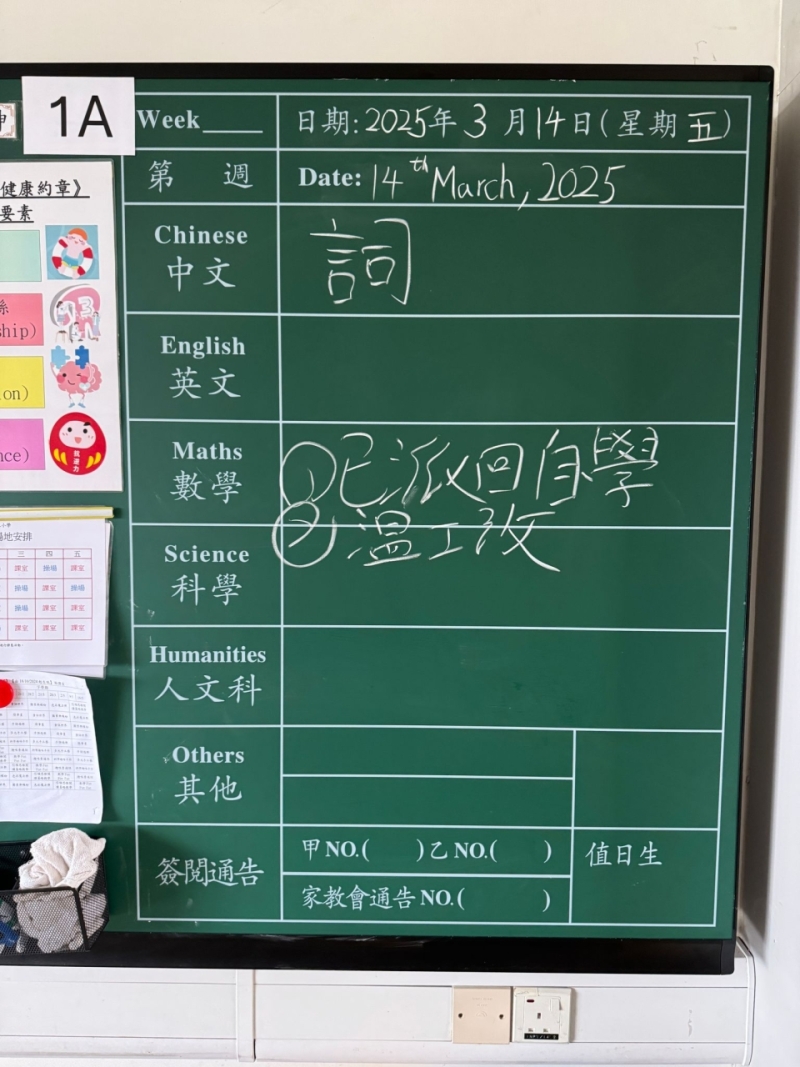 1A
Week____
日期: 2025年 3 月 14日 (星期 五)
第 週
Date: 14th March, 2025
Chinese
中文
詞
English
英文
Maths
數學
①已派回自學
②溫工改
Science
科學
Humanities
人文科
Others
其他
簽閱通告
甲 NO.( ) 乙 NO.( )
家教會通告 NO.( )
值日生
健康約章》
要素
ship)
on)
nce)
地安排
三 四 五
課室 操場 課室
課室 課室 課室